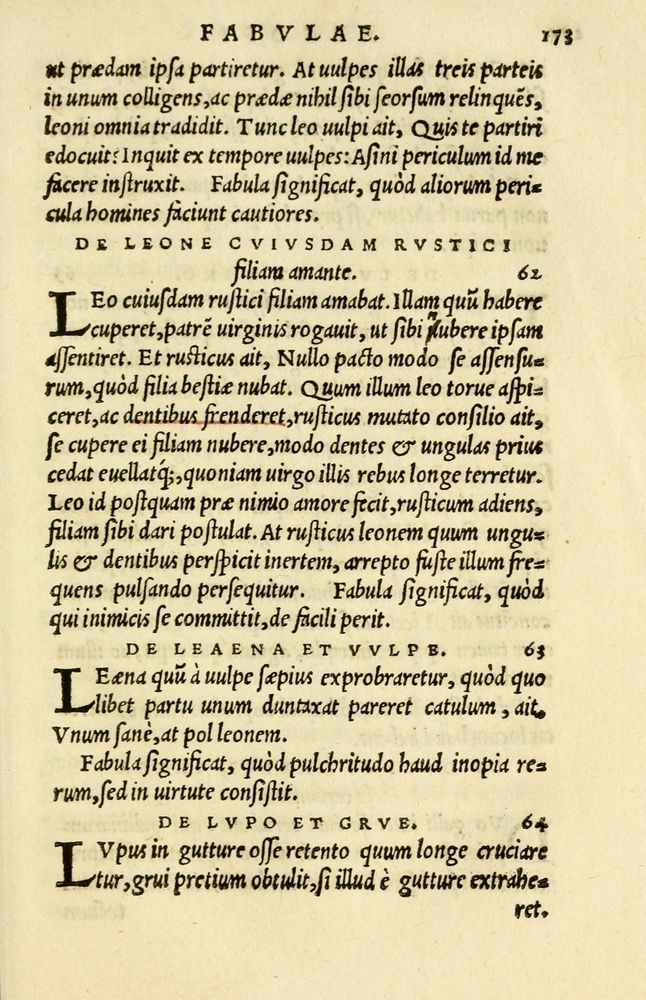 FABVLAE. 173
ut prædam ipsa partiretur. At uulpes illas treis parteis
in unum colligens, ac prædæ nihil sibi seorsum relinquẽs,
leoni omnia tradidit. Tunc leo uulpi ait, Quis te partiri
edocuit? Inquit ex tempore uulpes: Asini periculum id me
facere instruxit. Fabula significat, quòd aliorum peri-
cula homines faciunt cautiores.
DE LEONE CVIVSDAM RVSTICI
filiam amante. 62
LEo cuiusdam rustici filiam amabat. Illam quũ habere
cuperet, patrẽ uirginis rogauit, ut sibi nubere ipsam
assentiret. Et rusticus ait, Nullo pacto modo se assensu-
rum, quòd filia bestiæ nubat. Quum illum leo torue aspi-
ceret, ac dentibus frenderet, rusticus mutato consilio ait,
se cupere ei filiam nubere, modo dentes & ungulas prius
cedat euellatq́;, quoniam uirgo illis rebus longe terretur.
Leo id postquam præ nimio amore fecit, rusticum adiens,
filiam sibi dari postulat. At rusticus leonem quum ungu-
lis & dentibus perspicit inertem, arrepto fuste illum fre-
quens pulsando persequitur. Fabula significat, quòd
qui inimicis se committit, de facili perit.
DE LEAENA ET VVLPE. 63
LEæna quũ à uulpe sæpius exprobraretur, quòd quo
libet partu unum duntaxat pareret catulum, ait,
Vnum sanè, at pol leonem.
Fabula significat, quòd pulchritudo haud inopia re-
rum, sed in uirtute consistit.
DE LVPO ET GRVE. 64
LVpus in gutture osse retento quum longe cruciare
tur, grui pretium obtulit, si illud è gutture extrahe-
ret.